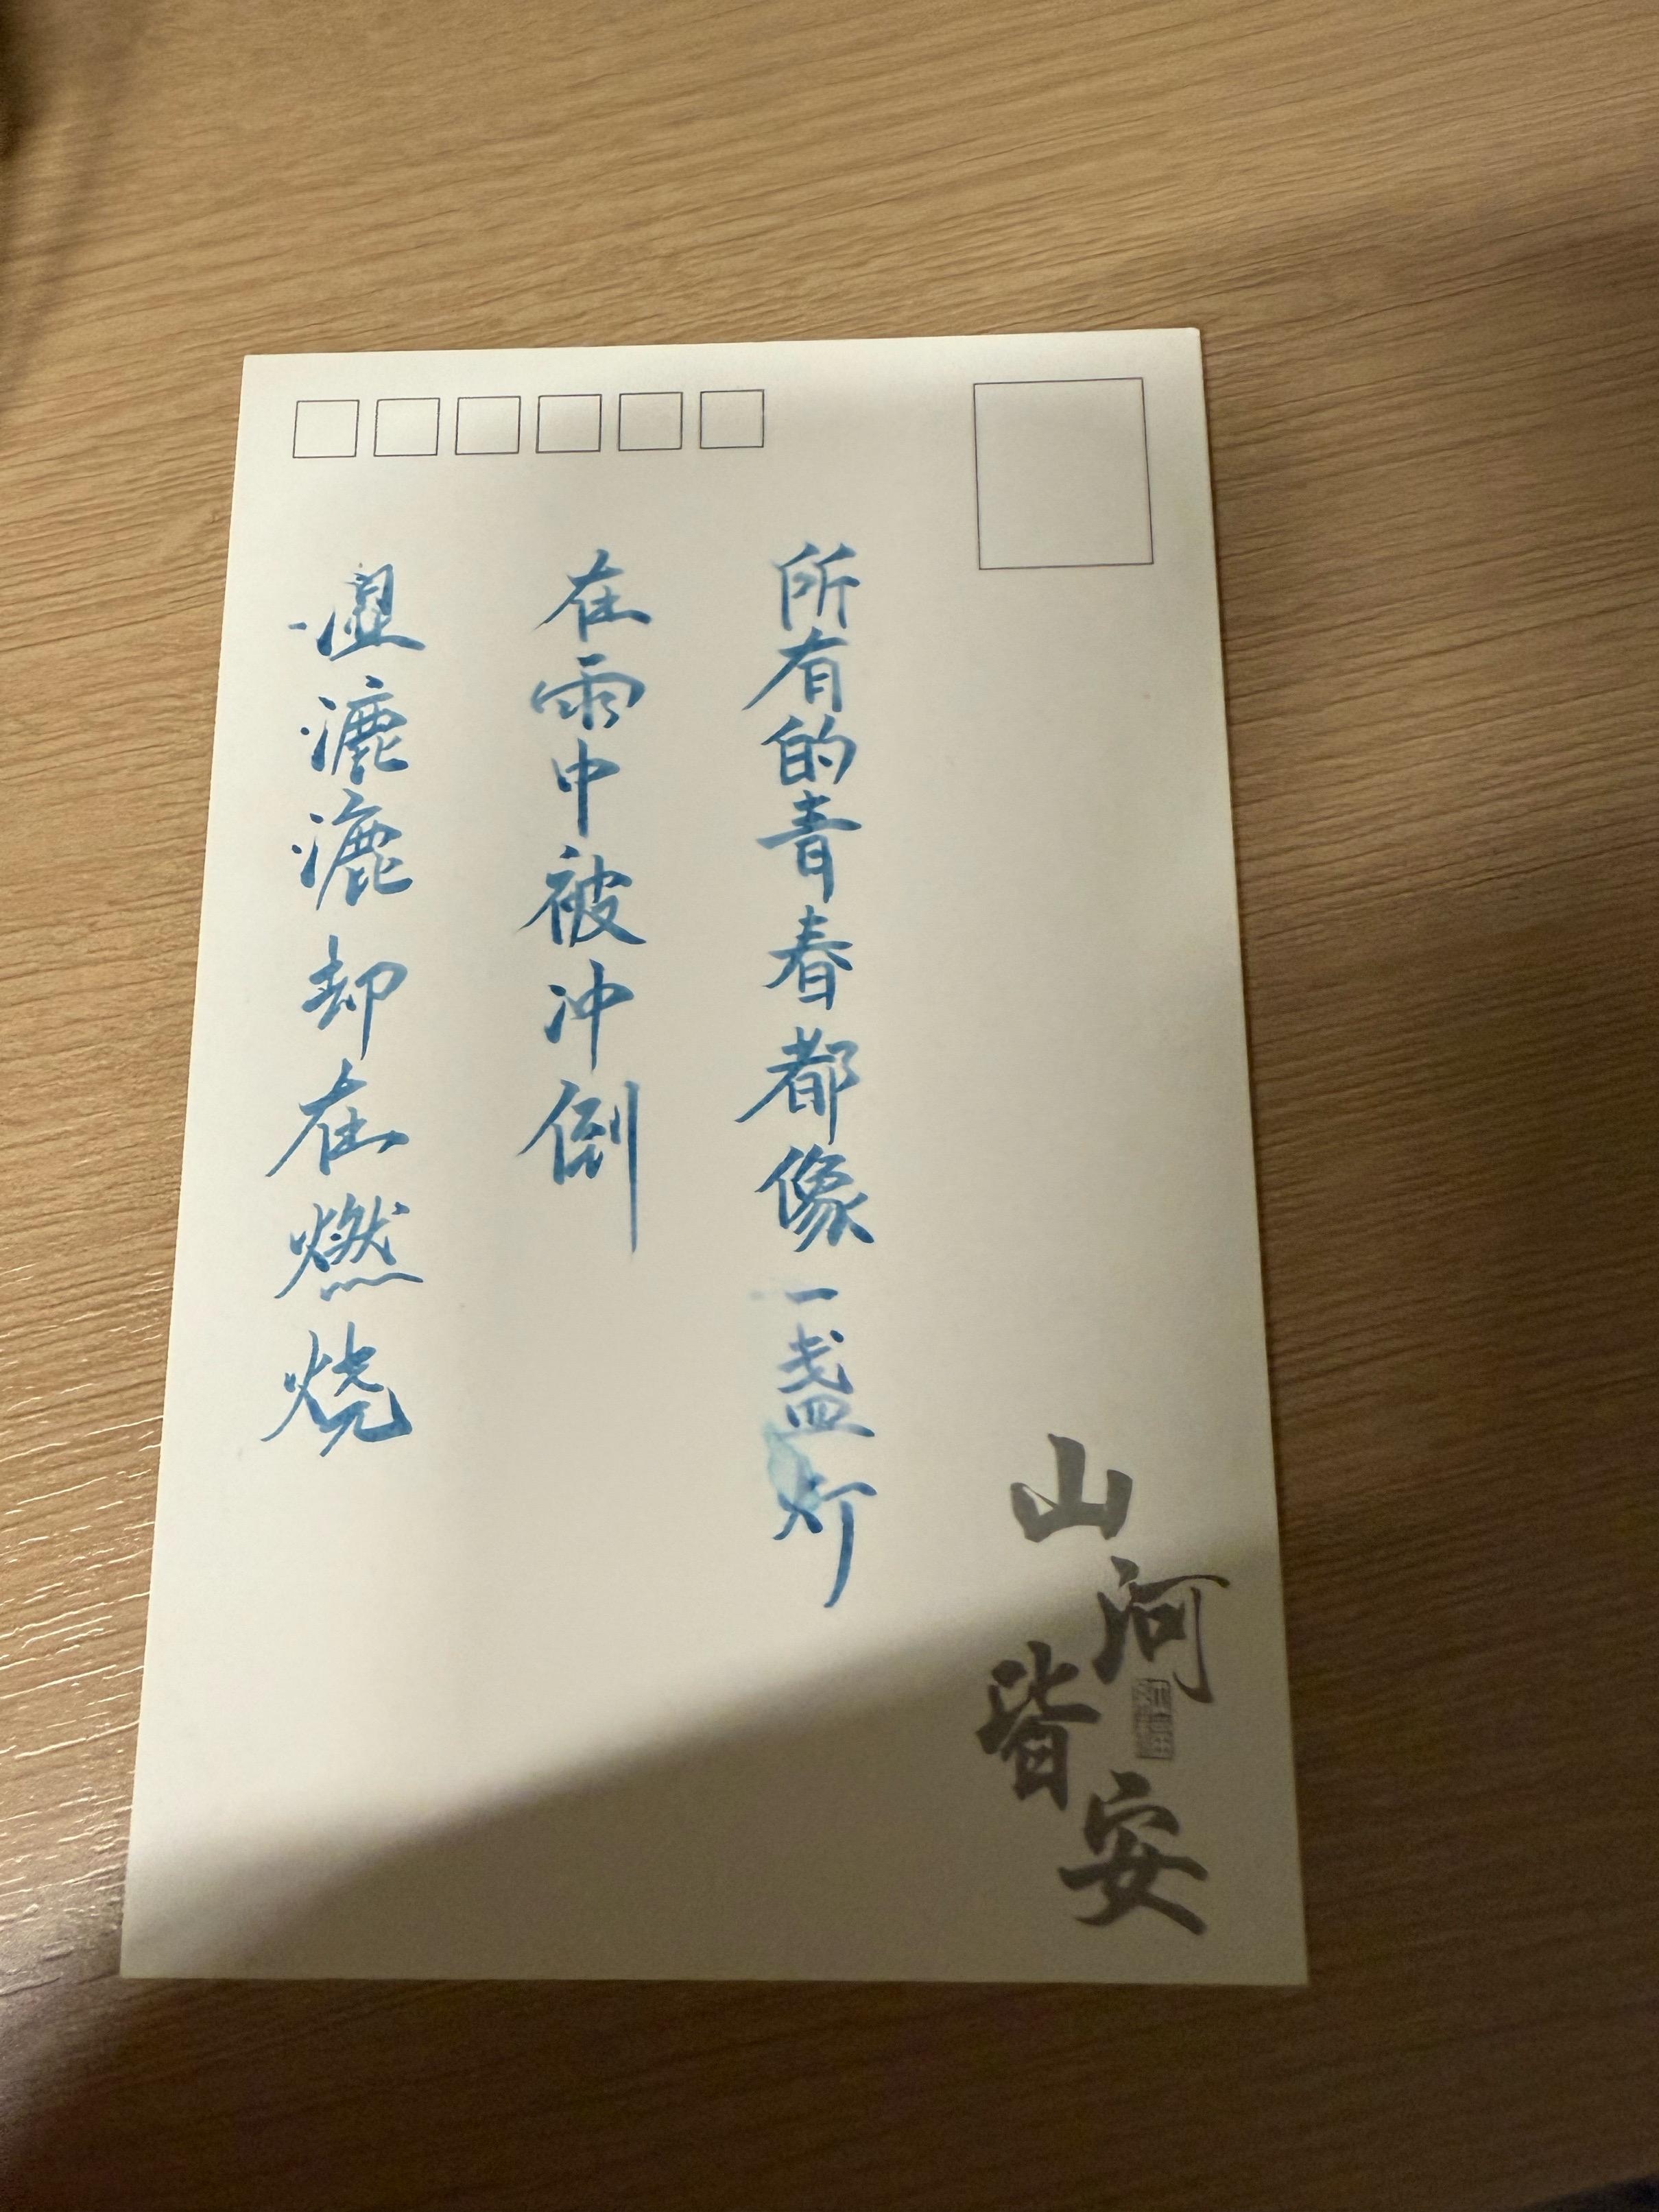 所有的青春都像一盏灯
在雨中被冲倒
湿漉漉却在燃烧
山河
皆安